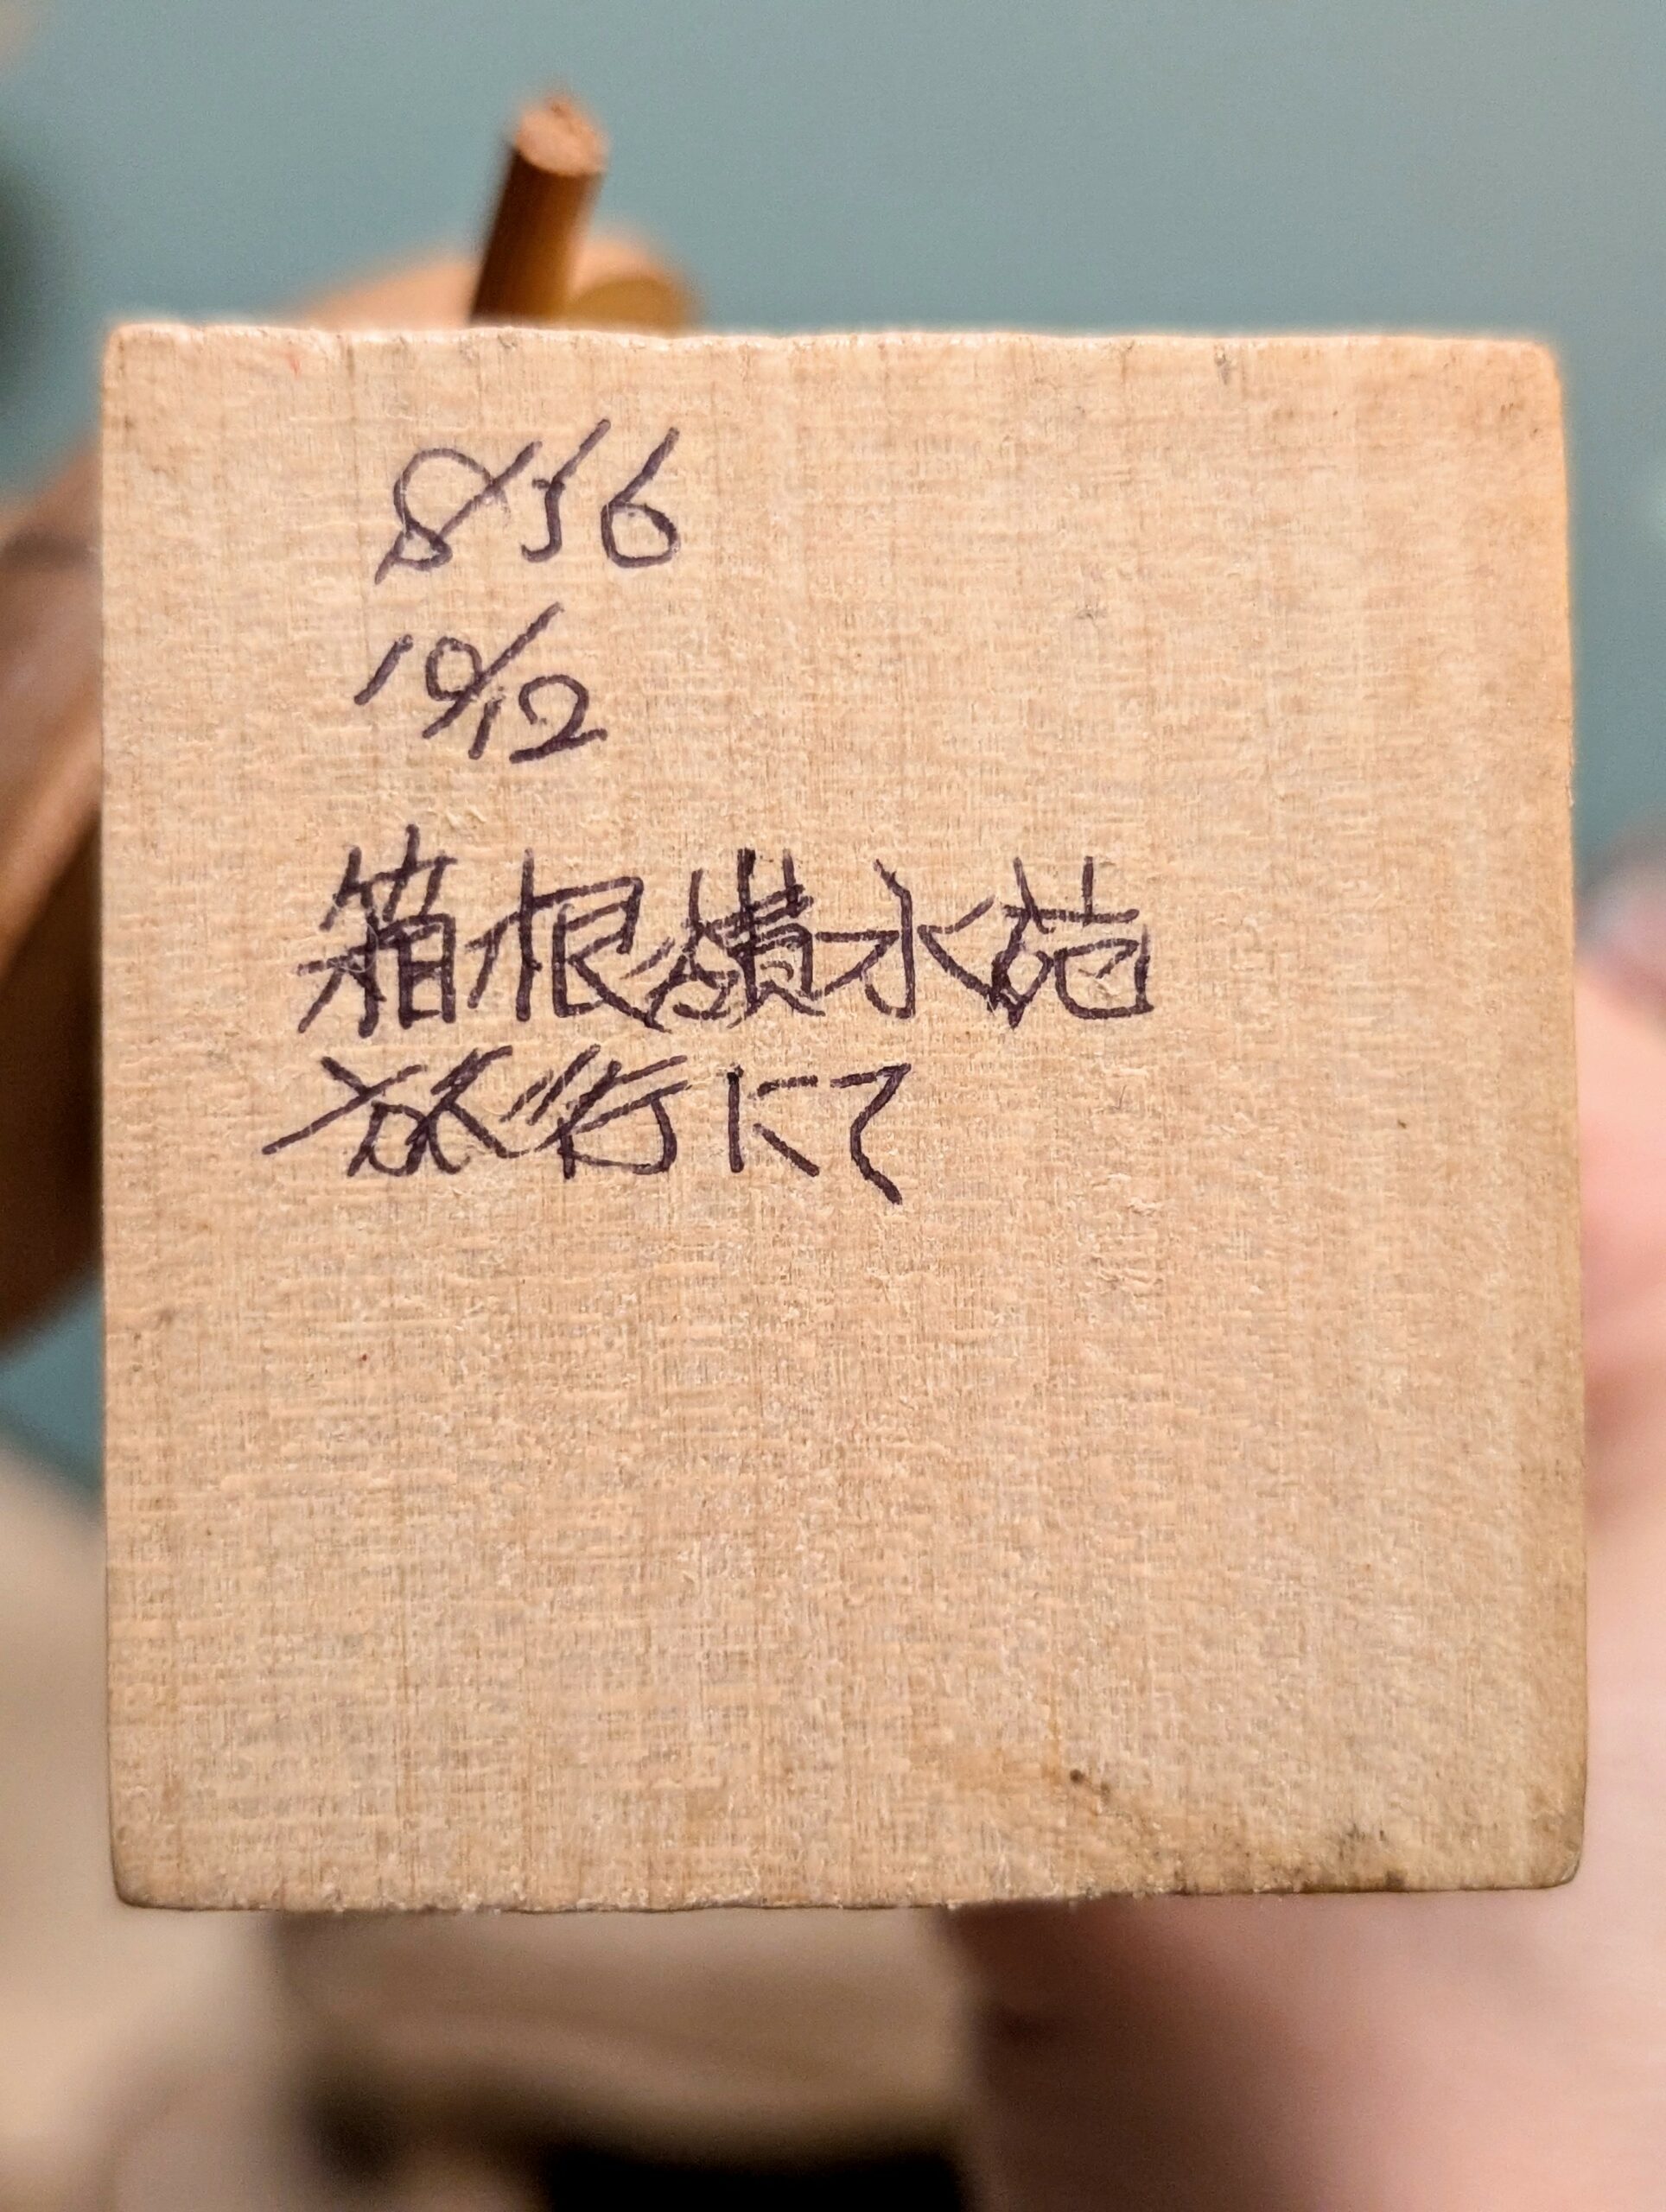 856
10/12
箱根積水苑
旅行にて